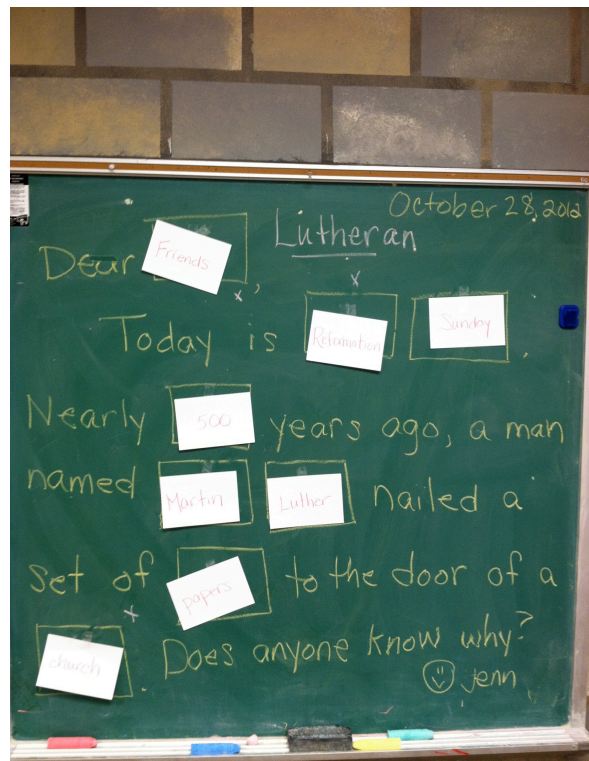 October 28, 2012
Lutheran
Dear Friends,
x x
Today is Reformation Sunday.
Nearly 500 years ago, a man
named Martin Luther nailed a
set of papers to the door of a
x
church. Does anyone know why?
jenn